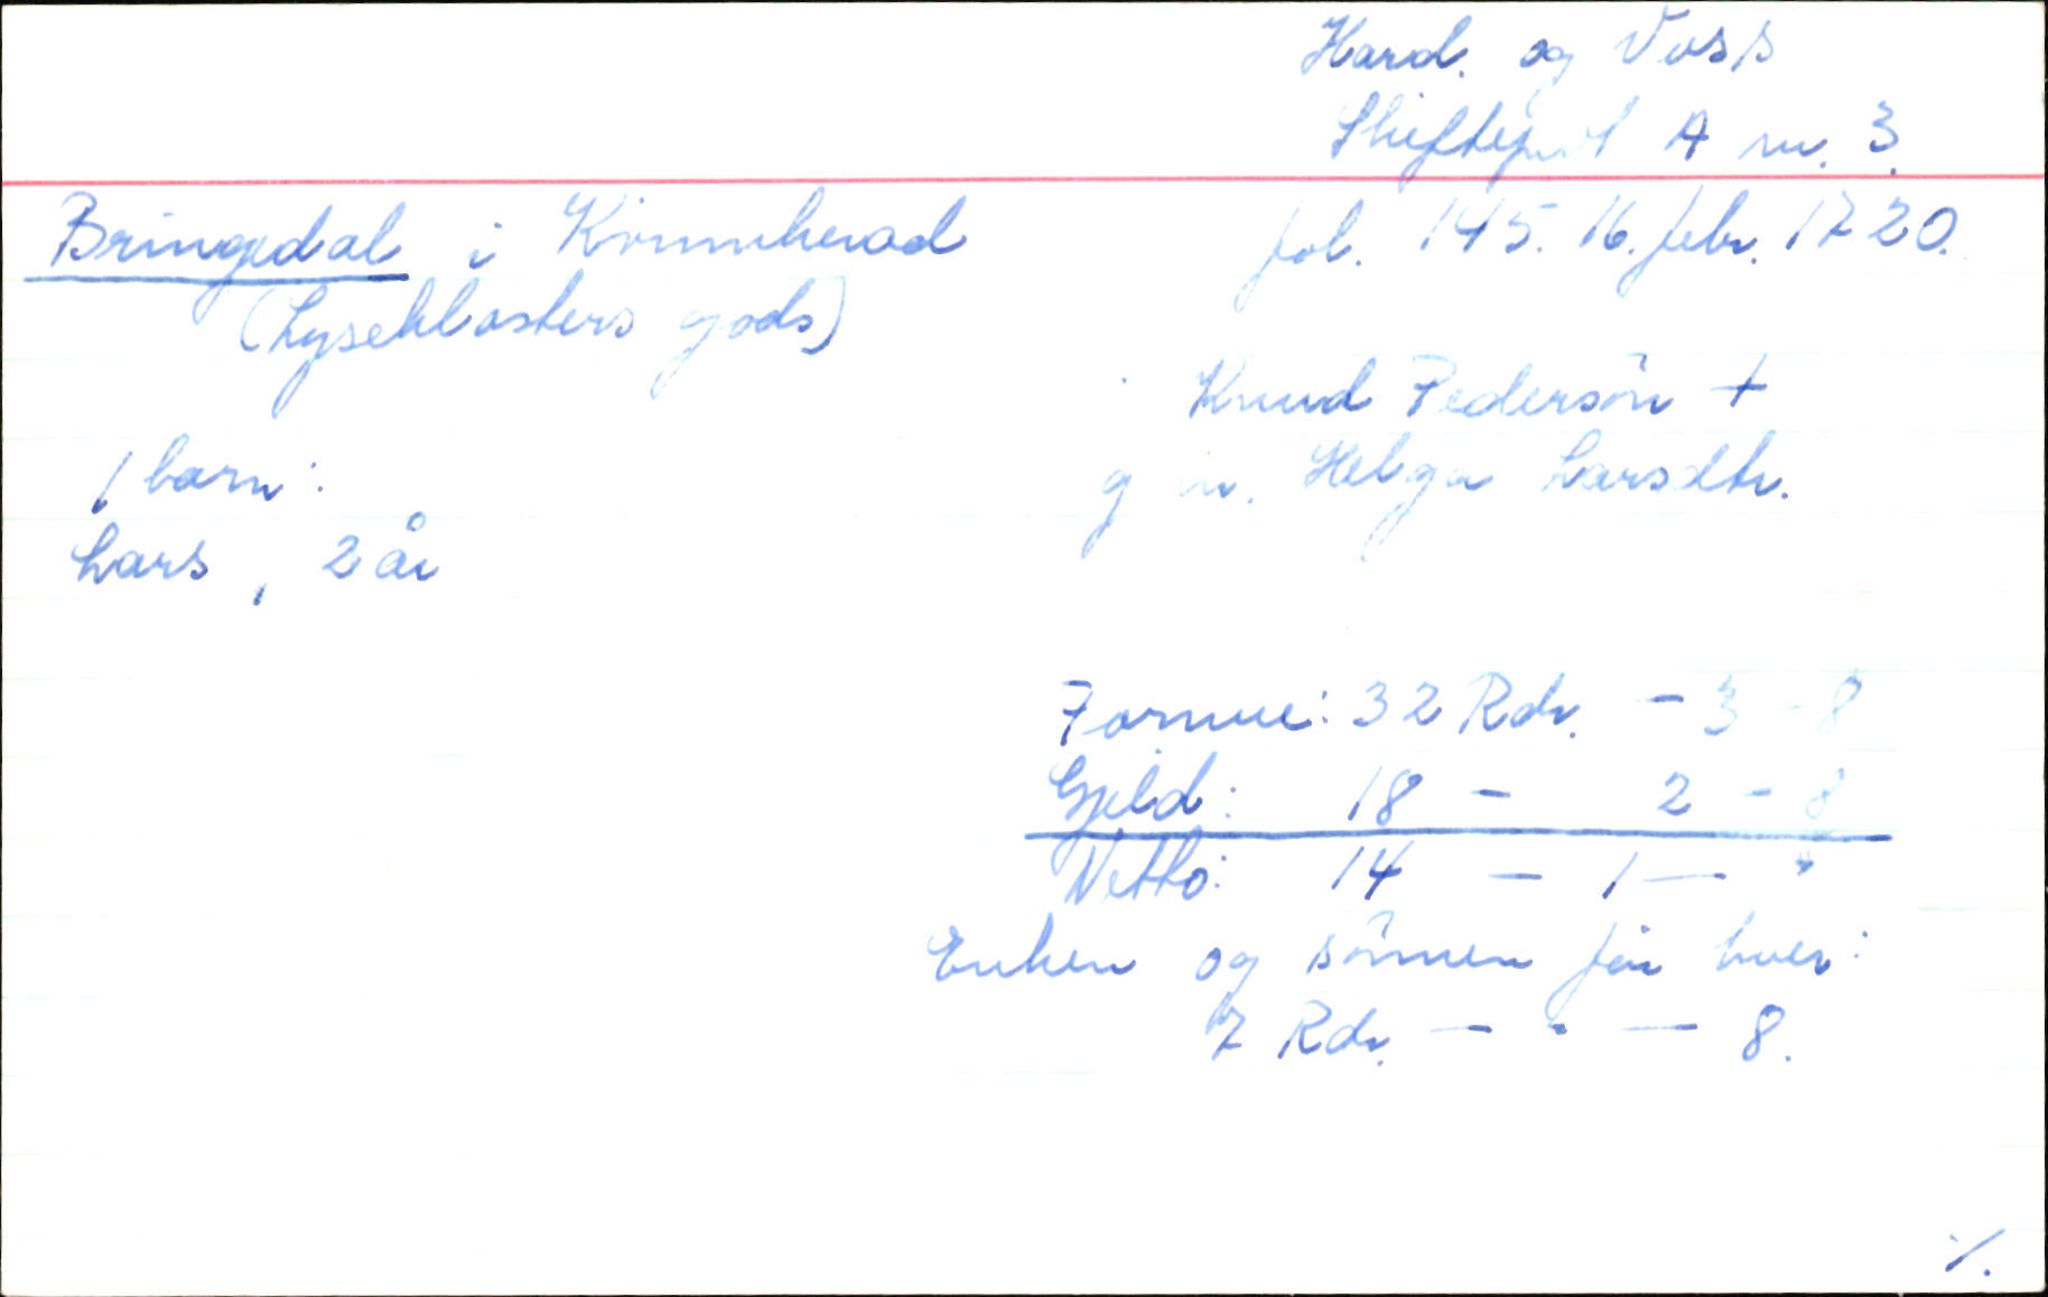 Hard. og Voss
Skifteprot A nr. 3.
Bringedal i Kvinnherad fol. 145. 16. febr. 1720.
(Lyseklosters gods)
Knud Pedersön +
1 barn: g m. Helga Larsdtr.
Lars, 2 år
Formue: 32 Rdr. - 3 - 8
Gjeld: 18 - 2 - 8
Netto: 14 - 1 — "
Enken og sönnen får hver:
7 Rdr. — · — 8.
·/.